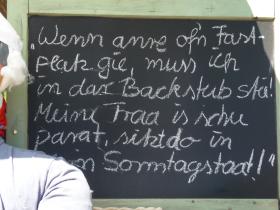 „Wenn anre ofn Fast-
Platz gie, muss ich
in dar Backstub stiı!
Meine Fraa is schu
parat, sitzt do in
Sonntagstaat!"